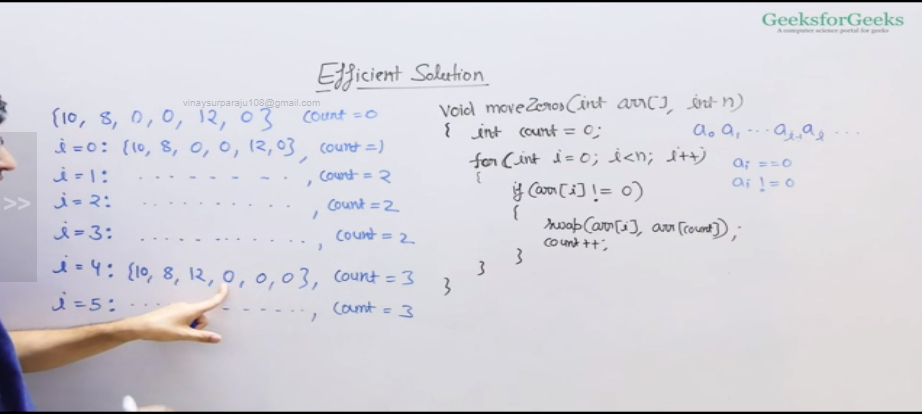 GeeksforGeeks
A computer science portal for geeks
Efficient Solution
vinaysurparaju108@gmail.com
{10, 8, 0, 0, 12, 0} count = 0
i = 0: {10, 8, 0, 0, 12, 0}, count = 1
i = 1: - - - - - - - , count = 2
i = 2: . . . . . . . . . . , count = 2
i = 3: . . . . . . . . . . , count = 2
i = 4: {10, 8, 12, 0, 0, 0}, count = 3
i = 5: . . . - - . . . . . , count = 3
void moveZeros(int arr[], int n)
{ int count = 0;
for(int i = 0; i<n; i++)
{
if(arr[i] != 0)
{
swap(arr[i], arr[count]);
count++;
}
}
}
a₀ a₁ ... aᵢ₋₁ aᵢ ...
aᵢ == 0
aᵢ != 0
>>